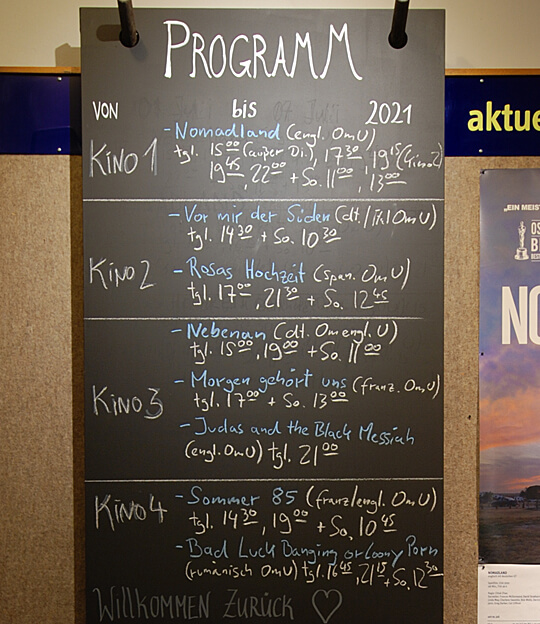 PROGRAMM
VON bis 2021
KINO 1
- Nomadland (engl. OmU)
tgl. 15⁰⁰ (außer Di.), 17³⁰, 19¹⁵ (Kino 2)
19⁴⁵, 22⁰⁰ + So. 11⁰⁰, 13⁰⁰
KINO 2
- Vor mir der Süden (dt./ital OmU)
tgl. 14³⁰ + So. 10³⁰
- Rosas Hochzeit (span. OmU)
tgl. 17⁰⁰, 21³⁰ + So. 12⁴⁵
KINO 3
- Nebenan (dt. Omengl. U)
tgl. 15⁰⁰, 19⁰⁰ + So. 11⁰⁰
- Morgen gehört uns (franz. OmU)
tgl. 17⁰⁰ + So. 13⁰⁰
- Judas and the Black Messiah
(engl. OmU) tgl. 21⁰⁰
KINO 4
- Sommer 85 (franz/engl. OmU)
tgl. 14³⁰, 19⁰⁰ + So. 10⁴⁵
- Bad Luck Banging or Loony Porn
(rumänisch OmU) tgl. 16⁴⁵, 21¹⁵ + So. 12³⁰
WILLKOMMEN ZURÜCK ♡
aktue
„EIN MEIS
NO
NOMADLAND